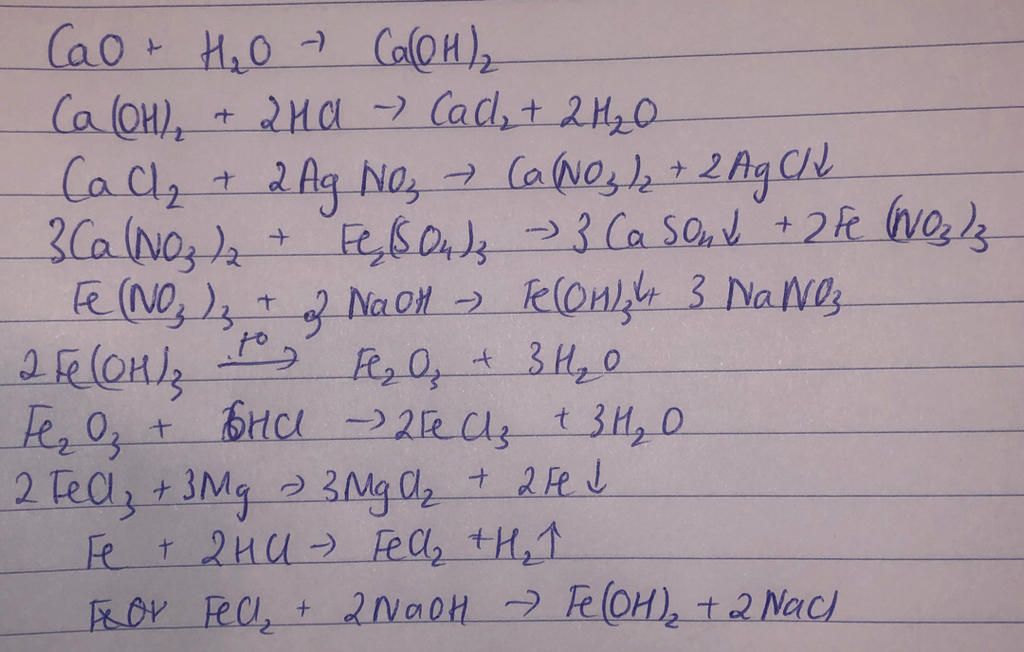 CaO + H₂O → Ca(OH)₂
Ca(OH)₂ + 2HCl → CaCl₂ + 2H₂O
CaCl₂ + 2AgNO₃ → Ca(NO₃)₂ + 2AgCl↓
3Ca(NO₃)₂ + Fe₂(SO₄)₃ → 3CaSO₄↓ + 2Fe(NO₃)₃
Fe(NO₃)₃ + 3NaOH → Fe(OH)₃↓ + 3NaNO₃
2Fe(OH)₃ —t°→ Fe₂O₃ + 3H₂O
Fe₂O₃ + 6HCl → 2FeCl₃ + 3H₂O
2FeCl₃ + 3Mg → 3MgCl₂ + 2Fe↓
Fe + 2HCl → FeCl₂ + H₂↑
FeCl₂ + 2NaOH → Fe(OH)₂ + 2NaCl